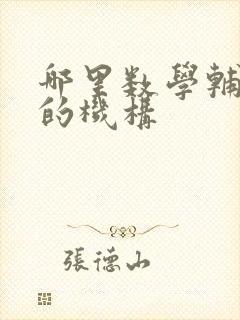 哪里数學輔
的機構
張德山